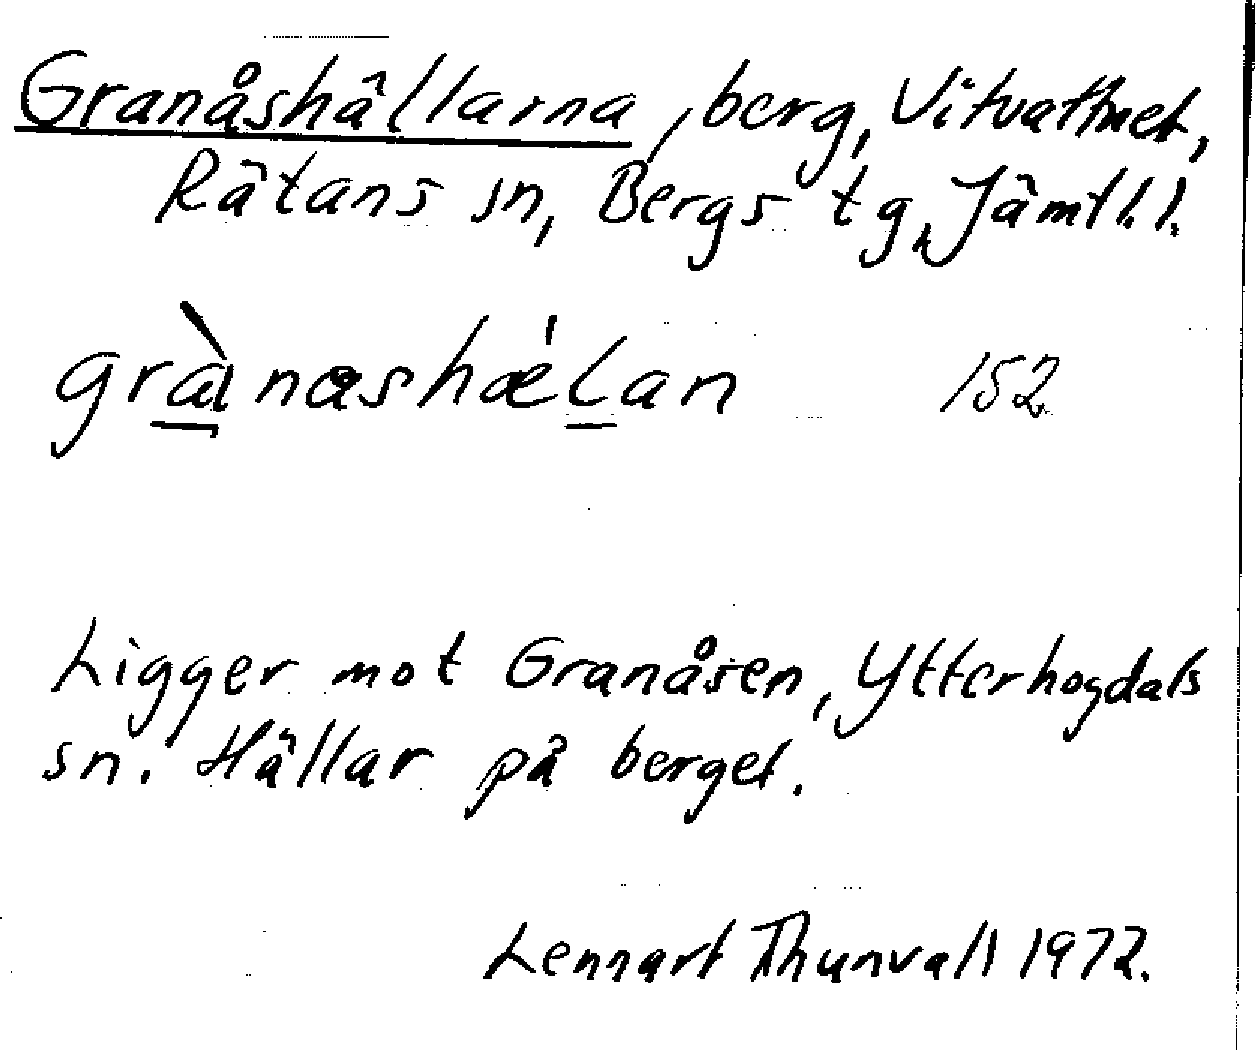 Granåshällarna, berg, Vitvattnet,
Rätans sn, Bergs tg, Jämtl. l.
grànashǽlan 152
Ligger mot Granåsen, Ytterhogdals
sn. Hällar på berget.
Lennart Thunvall 1972.